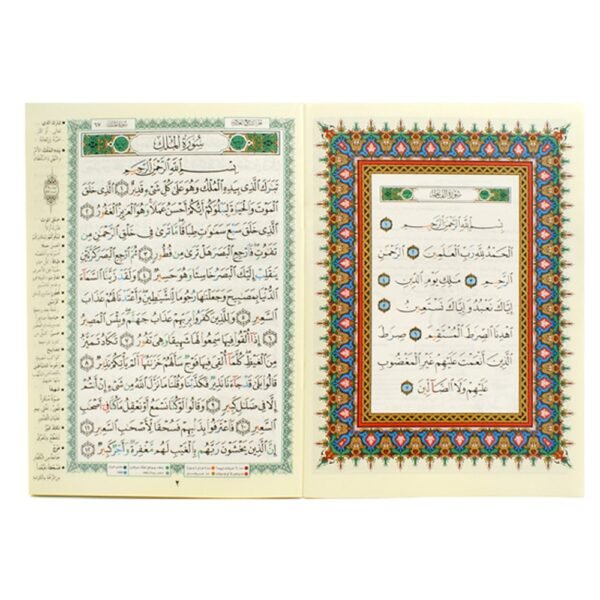 سُورَةُ الفَاتِحَة
بِسْمِ ٱللَّهِ ٱلرَّحْمَٰنِ ٱلرَّحِيمِ ١
ٱلْحَمْدُ لِلَّهِ رَبِّ ٱلْعَٰلَمِينَ ٢ ٱلرَّحْمَٰنِ
ٱلرَّحِيمِ ٣ مَٰلِكِ يَوْمِ ٱلدِّينِ ٤
إِيَّاكَ نَعْبُدُ وَإِيَّاكَ نَسْتَعِينُ ٥
ٱهْدِنَا ٱلصِّرَٰطَ ٱلْمُسْتَقِيمَ ٦ صِرَٰطَ
ٱلَّذِينَ أَنْعَمْتَ عَلَيْهِمْ غَيْرِ ٱلْمَغْضُوبِ
عَلَيْهِمْ وَلَا ٱلضَّآلِّينَ ٧
٦٧
سُورَةُ المُلْكِ
بِسْمِ ٱللَّهِ ٱلرَّحْمَٰنِ ٱلرَّحِيمِ
تَبَٰرَكَ ٱلَّذِي بِيَدِهِ ٱلْمُلْكُ وَهُوَ عَلَىٰ كُلِّ شَيْءٍ قَدِيرٌ ١ ٱلَّذِي خَلَقَ
ٱلْمَوْتَ وَٱلْحَيَوٰةَ لِيَبْلُوَكُمْ أَيُّكُمْ أَحْسَنُ عَمَلًا وَهُوَ ٱلْعَزِيزُ ٱلْغَفُورُ ٢
ٱلَّذِي خَلَقَ سَبْعَ سَمَٰوَٰتٍ طِبَاقًا مَّا تَرَىٰ فِي خَلْقِ ٱلرَّحْمَٰنِ مِن
تَفَٰوُتٍ فَٱرْجِعِ ٱلْبَصَرَ هَلْ تَرَىٰ مِن فُطُورٍ ٣ ثُمَّ ٱرْجِعِ ٱلْبَصَرَ كَرَّتَيْنِ
يَنقَلِبْ إِلَيْكَ ٱلْبَصَرُ خَاسِئًا وَهُوَ حَسِيرٌ ٤ وَلَقَدْ زَيَّنَّا ٱلسَّمَآءَ
ٱلدُّنْيَا بِمَصَٰبِيحَ وَجَعَلْنَٰهَا رُجُومًا لِّلشَّيَٰطِينِ وَأَعْتَدْنَا لَهُمْ عَذَابَ
ٱلسَّعِيرِ ٥ وَلِلَّذِينَ كَفَرُوا۟ بِرَبِّهِمْ عَذَابُ جَهَنَّمَ وَبِئْسَ ٱلْمَصِيرُ
٦ إِذَآ أُلْقُوا۟ فِيهَا سَمِعُوا۟ لَهَا شَهِيقًا وَهِيَ تَفُورُ ٧ تَكَادُ تَمَيَّزُ
مِنَ ٱلْغَيْظِ كُلَّمَآ أُلْقِيَ فِيهَا فَوْجٌ سَأَلَهُمْ خَزَنَتُهَآ أَلَمْ يَأْتِكُمْ نَذِيرٌ ٨
قَالُوا۟ بَلَىٰ قَدْ جَآءَنَا نَذِيرٌ فَكَذَّبْنَا وَقُلْنَا مَا نَزَّلَ ٱللَّهُ مِن شَيْءٍ إِنْ أَنتُمْ
إِلَّا فِي ضَلَٰلٍ كَبِيرٍ ٩ وَقَالُوا۟ لَوْ كُنَّا نَسْمَعُ أَوْ نَعْقِلُ مَا كُنَّا فِيٓ أَصْحَٰبِ
ٱلسَّعِيرِ ١٠ فَٱعْتَرَفُوا۟ بِذَنۢبِهِمْ فَسُحْقًا لِّأَصْحَٰبِ ٱلسَّعِيرِ
١١ إِنَّ ٱلَّذِينَ يَخْشَوْنَ رَبَّهُم بِٱلْغَيْبِ لَهُم مَّغْفِرَةٌ وَأَجْرٌ كَبِيرٌ ١٢
٢